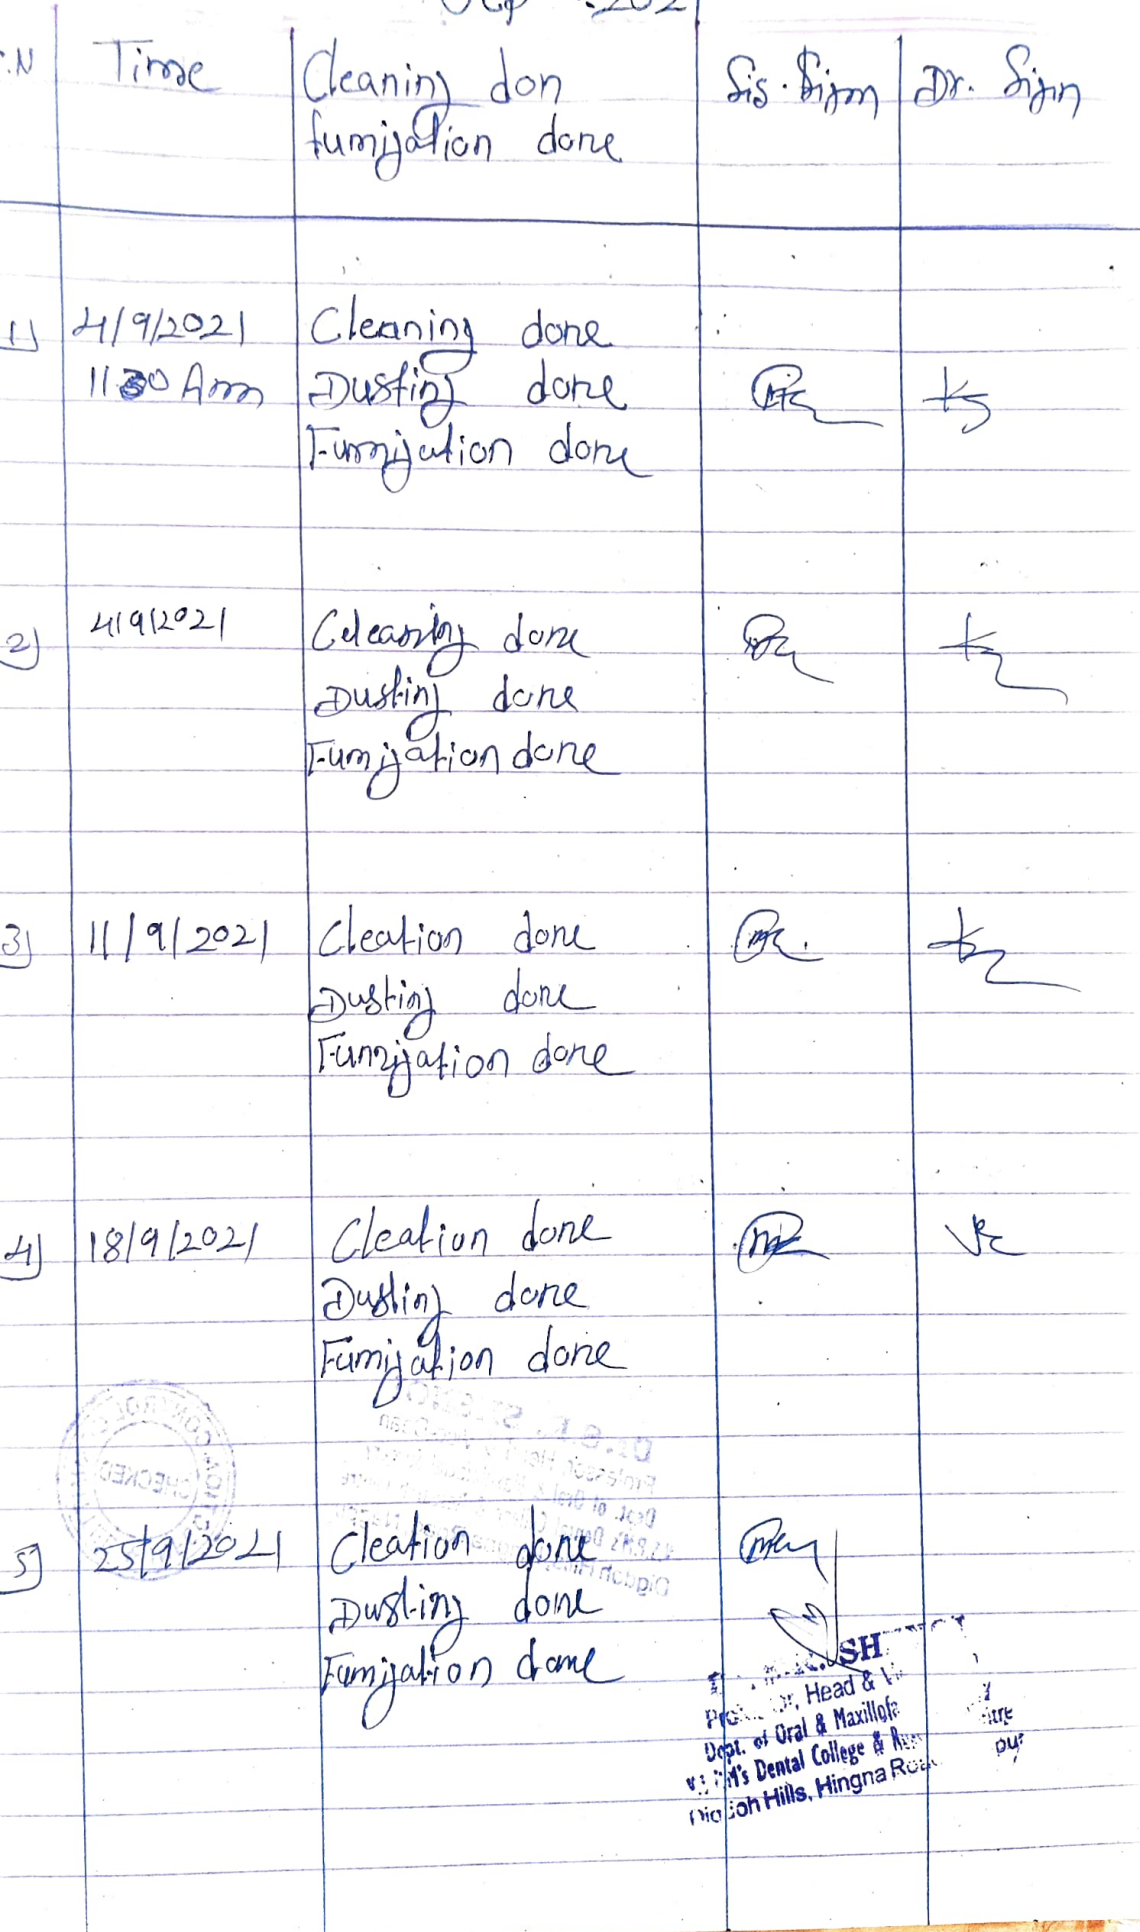 S.N Time Cleaning don Sis. Sign Dr. Sign
fumigation done
1) 4/9/2021 Cleaning done
11 30 Am Dusting done
Fumigation done
2) 4/9/2021 Celeaning done
Dusting done
Fumigation done
3) 11/9/2021 Cleation done
Dusting done
Fumigation done
4) 18/9/2021 Cleation done
Dusting done
Fumigation done
CHECKED
5) 25/9/2021 Cleation done
Dusting done
Fumigation done
Head &
Dept. of Oral & Maxillofa
Dental College &
Hills, Hingna